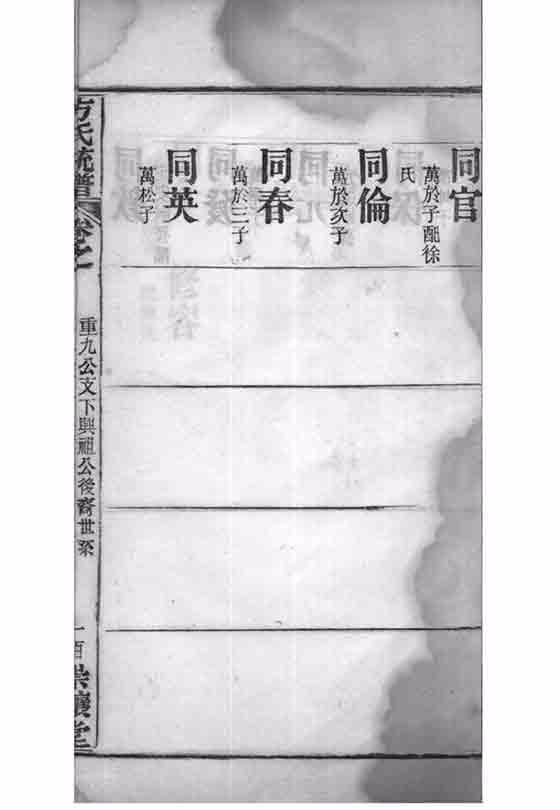 同官
萬於子配徐
氏
同倫
萬於次子
同春
萬於三子
同英
萬松子
方氏統譜
卷之
重九公支下興祖公後裔世系
一百
崇讓堂